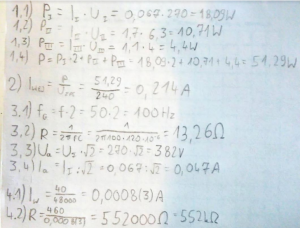 1.1) P_I = I_I · U_I = 0,067·270 = 18,09W
1.2) P_II = I_II · U_II = 1.7·6,3 = 10,71W
1,3) P_III = I_III·U_III = 1,1·4 = 4,4W
1,4) P = P_I·2 + P_II + P_III = 18,09·2 + 10,71 + 4,4 = 51,29W
2) = P = 51,29/240 = 0,214A
3.1) = f·2 = 50·2 = 100Hz
3.2) R = = = 13,26Ω
3,3) Ua = U_I·√2 = 270·√2 = 382V
3.4) Ia = I_I:√2 = 0,067:√2 = 0,047A
4.1) = 40/48000 = 0,0008(3) A
4.2) R = 460/0,0008(3) = 552000Ω = 552kΩ